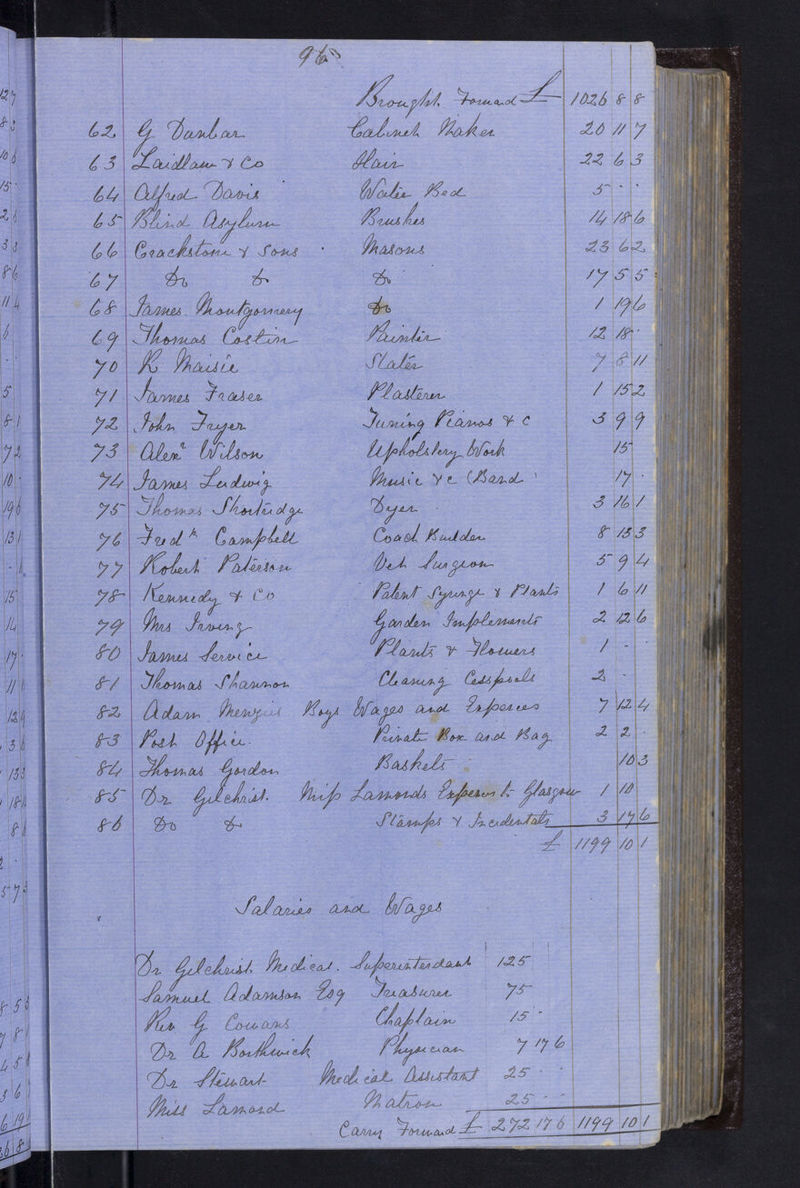 96
Brought Forward £ 1026 8 8
62 G Dunbar Cabinet Maker 20 11 7
63 Laidlaw & Co Hair 22 6 3
64 Alfred Davis Water Bed 5 · ·
65 Blind Asylum Brushes 14 18 6
66 Crackstone & Sons Masons 23 6 2
67 Do Do Do 17 5 5
68 James Montgomery Do 1 19 6
69 Thomas Costin Painter 12 18 ·
70 R Maisie Slater 7 8 11
71 James Fraser Plasterer 1 15 2
72 John Fryer Tuning Pianos & c 3 9 9
73 Alexr Wilson Upholstery Work 15
74 James Ludwig Music &c (Band 17 ·
75 Thomas Shortridge Dyer 3 16 1
76 Fredk Campbell Coach Builder 8 13 3
77 Robert Paterson Vet Surgeon 5 9 4
78 Kennedy & Co Patent Syringe & Plants 1 6 11
79 Mrs Irving Garden Implements 2 12 6
80 James Service Plants & Flowers 1 · ·
81 Thomas Shannon Cleaning Cesspools 2 ·
82 Adam Menzies Boys Wages and Expences 7 12 4
83 Post Office Private Box and Bag 2 2 ·
84 Thomas Gordon Baskets 10 3
85 Dr Gilchrist Miss Lamonds Expenses to Glasgow 1 10
86 Do Do Stamps & Incidentals 3 17 6
£ 1199 10 1
Salaries and Wages
Dr Gilchrist Medical Superintendant 125
Samuel Adamson Esq Treasurer 75
Rev G Cowans Chaplain 15 ·
Dr A Borthwick Physician 7 17 6
Dr Stewart Medical Assistant 25 · ·
Miss Lamond Matron 25 · ·
Carry Forward £ 272 17 6 1199 10 1